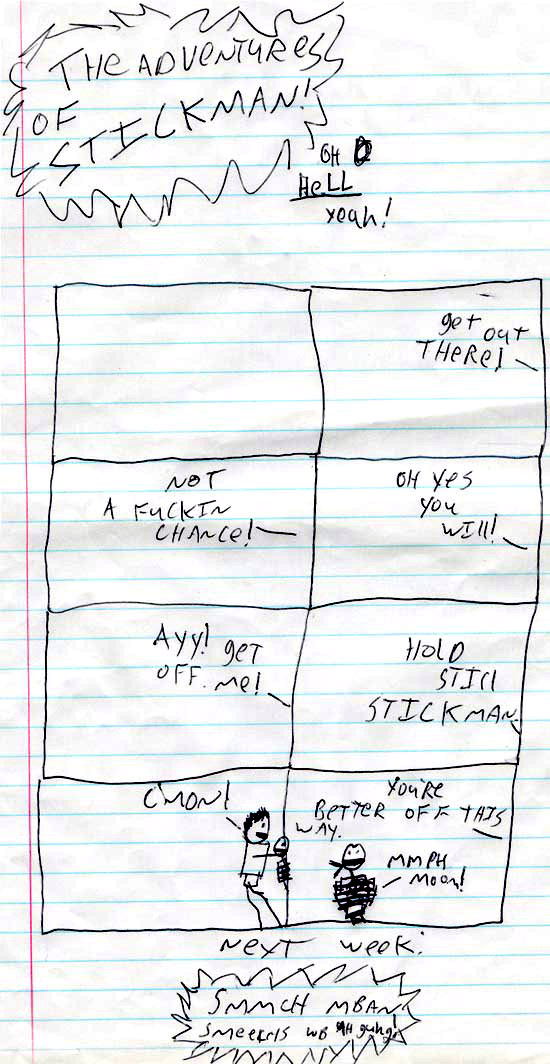 THE ADVENTURES
OF
STICKMAN!
OH
HELL
yeah!
get out
THERE!
NOT
A FUCKIN
CHANCE!
OH YES
YOU
WILL!
AYY! get
OFF me!
HOLD
STILL
STICKMAN.
C'MON!
YOU'RE
BETTER OFF THIS
WAY.
MMPH
MOOM!
NEXT WEEK:
SMMCH MBAN